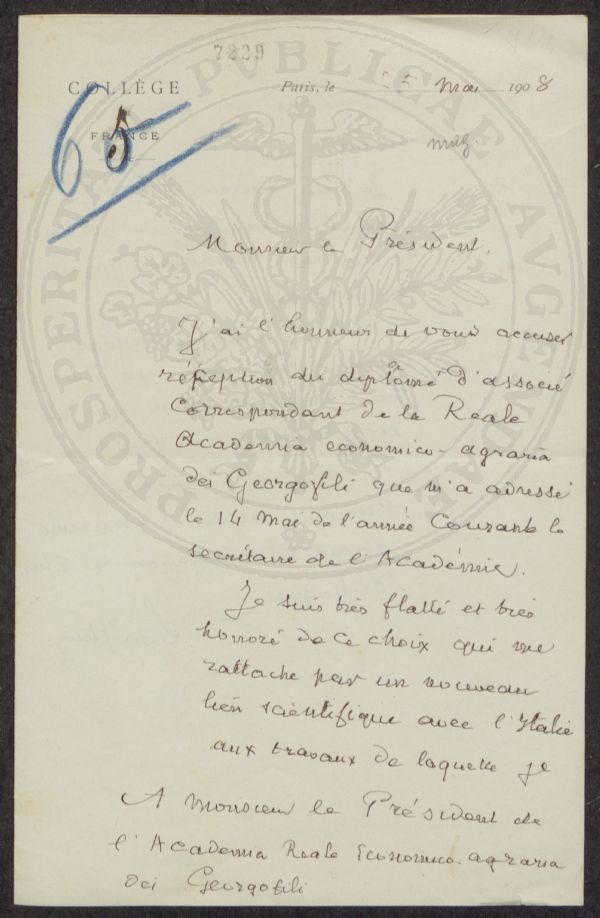 7239
COLLÈGE
Paris, le 25 Mai 1908
FRANCE
65
Monsieur le Président,
J'ai l'honneur de vous accuser
réception du diplôme d'associé
Correspondant de la Reale
Academia economico-agraria
dei Georgofili que m'a adressé
le 14 Mai de l'année Courante le
secrétaire de l'Académie.
Je suis très flatté et très
honoré de ce choix qui me
rattache par un nouveau
lien scientifique avec l'Italie
aux travaux de laquelle je
A Monsieur le Président de
l'Academia Reale Economico-agraria
dei Georgofili
PROSPERITATI PVBLICAE AVGENDAE